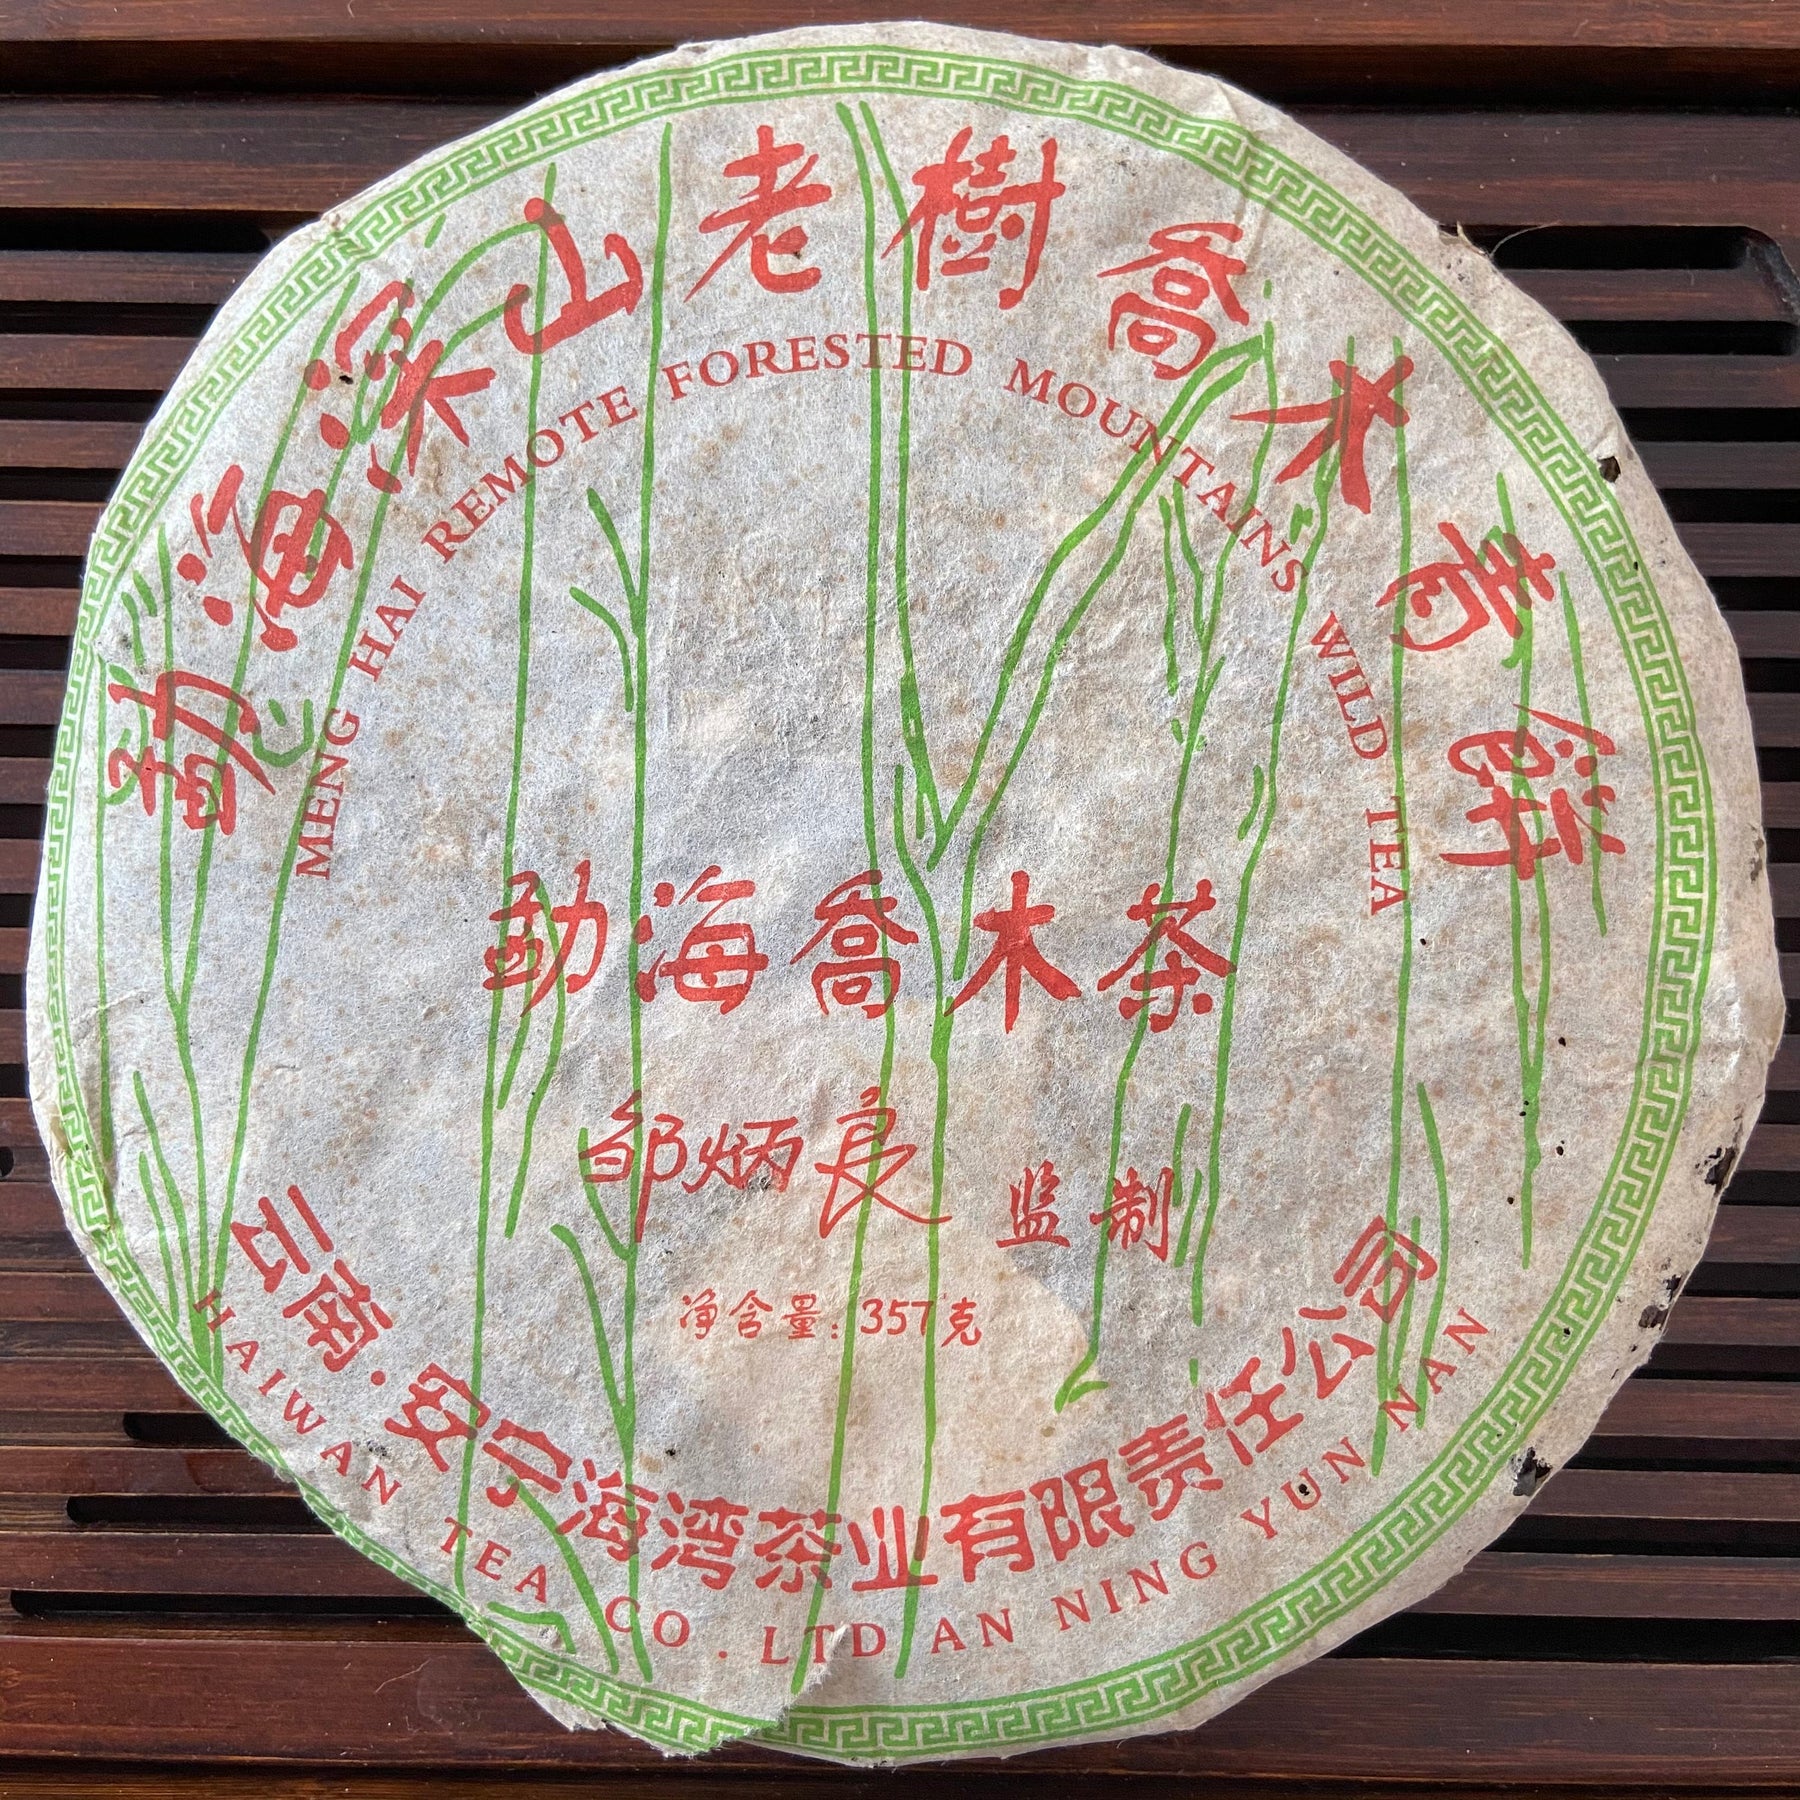 勐海深山老樹喬木青餅
MENG HAI REMOTE FORESTED MOUNTAINS WILD TEA
勐海喬木茶
邹炳良 监制
净含量：357克
云南·安宁海湾茶业有限责任公司
HAIWAN TEA CO. LTD AN NING YUN NAN